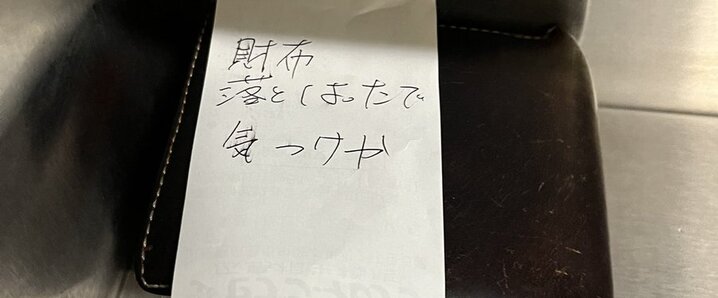 財布
落としはったで
気つけや